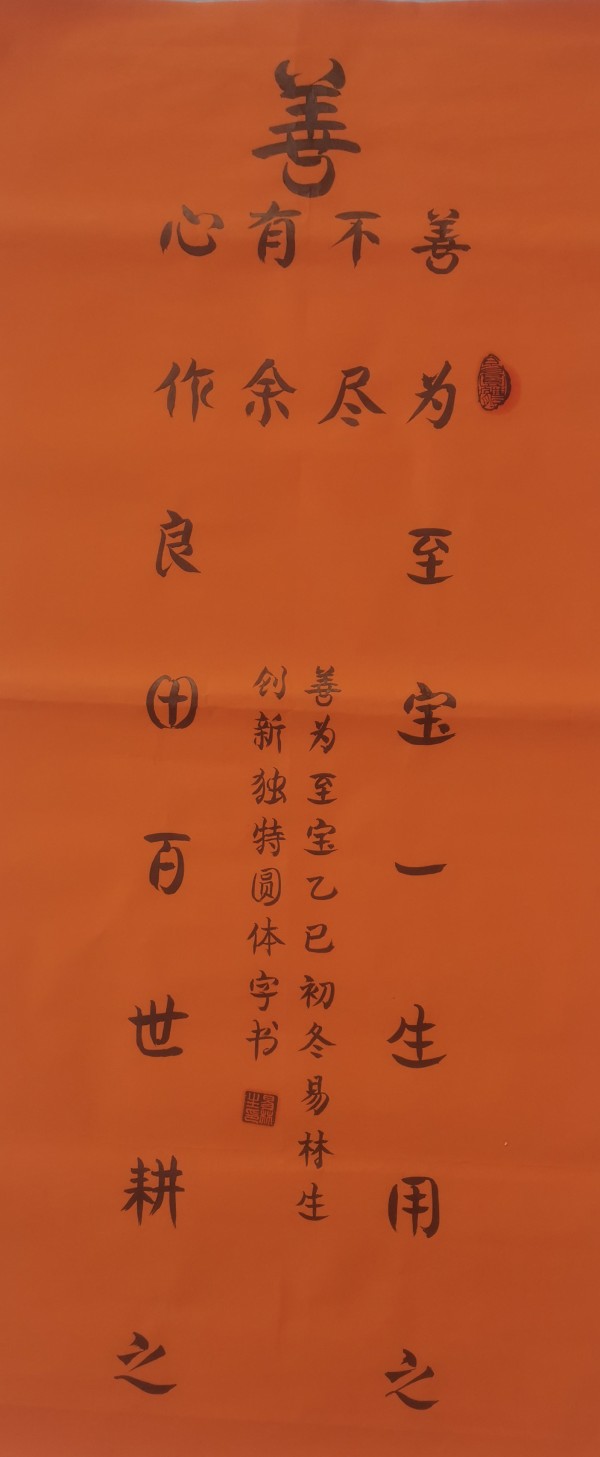 善
善为至宝一生用之
不尽
有余
心作良田百世耕之
善为至宝乙巳初冬易林生
创新独特圆体字书